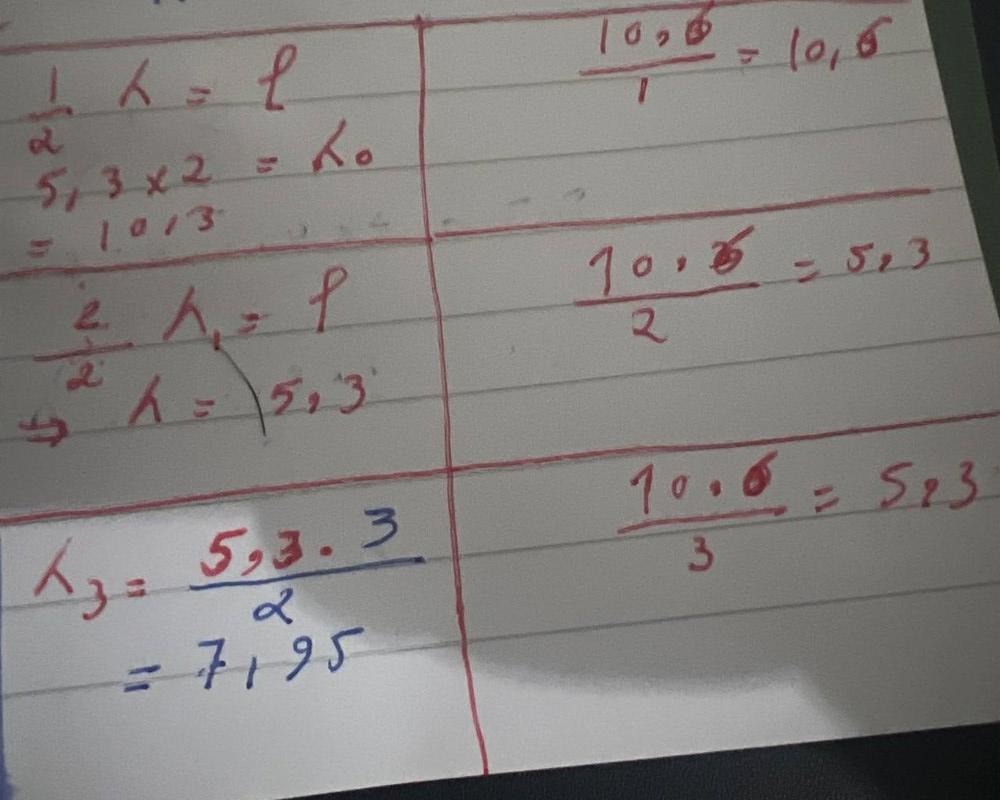 1/2 λ = ℓ
5,3 × 2 = λ₀
= 10,3
10,6/1 = 10,6
2/2 λ₁ = ℓ
⇒ λ = 5,3
10,6/2 = 5,3
λ₃ = 5,3 . 3/2
= 7,95
10,6/3 = 5,3